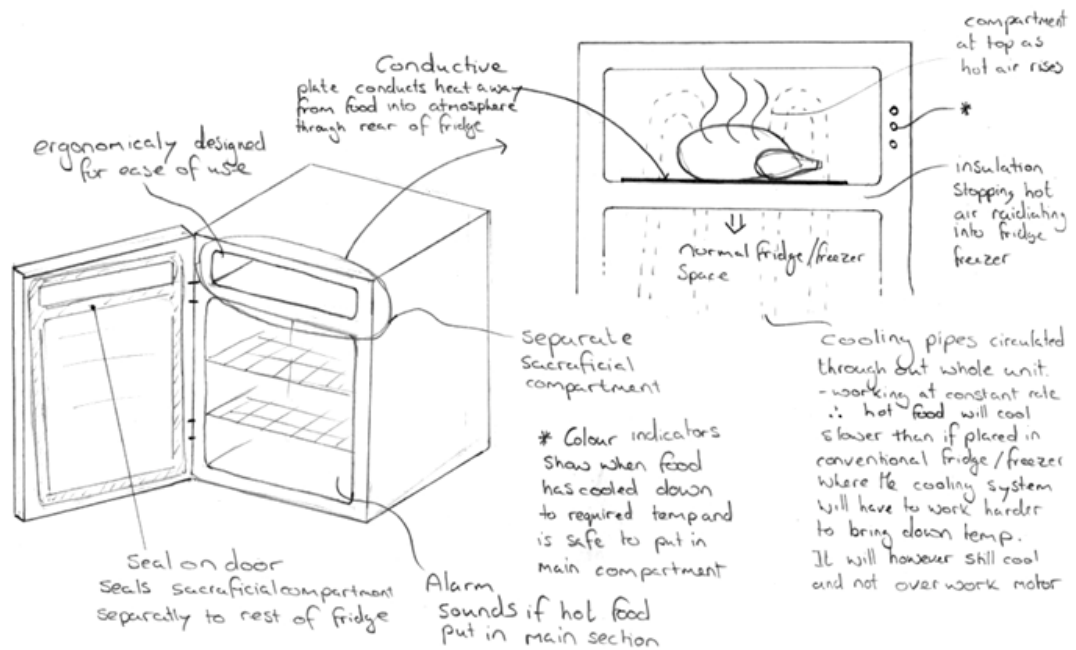 Conductive
plate conducts heat away
from food into atmosphere
through rear of fridge
compartment
at top as
hot air rises
*
ergonomicaly designed
for ease of use
insulation
stopping hot
air raidiating
into fridge
freezer
normal fridge/freezer
space
separate
sacraficial
compartment
cooling pipes circulated
through out whole unit.
- working at constant rate
∴ hot food will cool
slower than if placed in
conventional fridge/freezer
where the cooling system
will have to work harder
to bring down temp.
It will however still cool
and not over work motor
* Colour indicators
show when food
has cooled down
to required temp and
is safe to put in
main compartment
seal on door
seals sacraficial compartment
separatly to rest of fridge
Alarm
sounds if hot food
put in main section